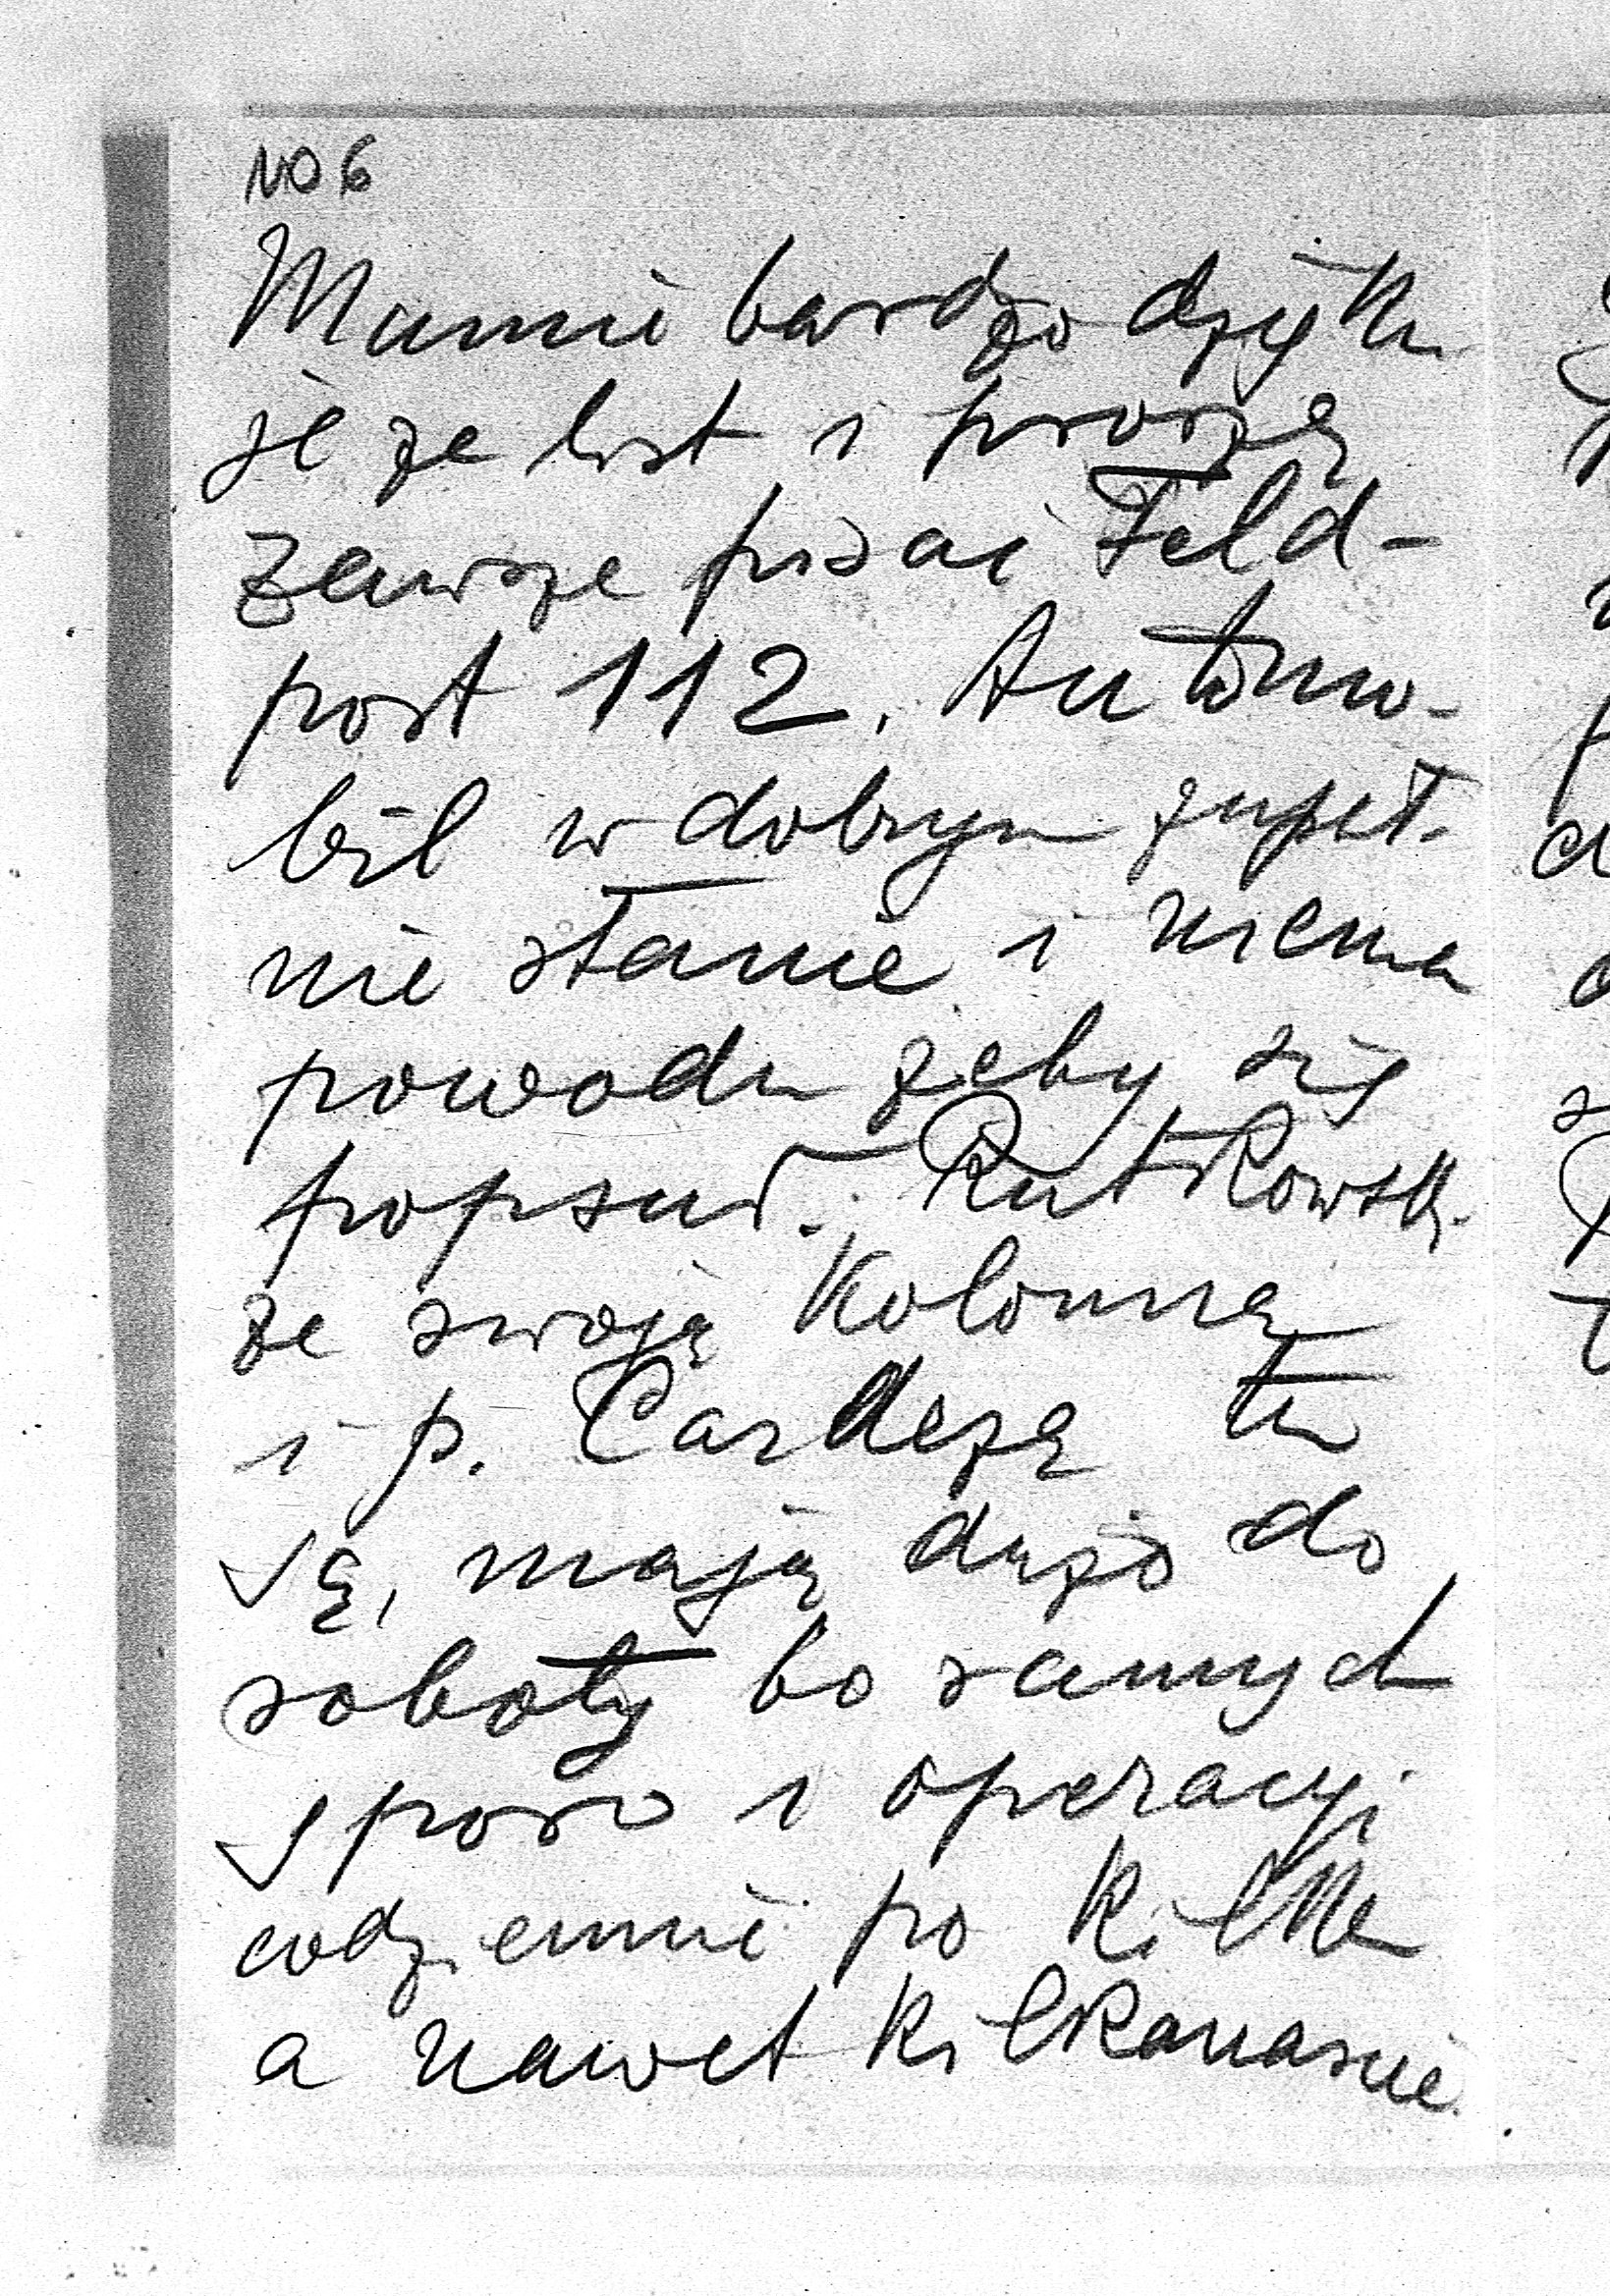 NO 6
Mamie bardzo dzięku
je za list i proszę
zawsze pisać Feld-
post 112. Automo-
bil w dobrym zupeł-
nie stanie i niema
powodu żeby się
popsuł. Rutkowski
ze swoją Kolonną
i p. Cardezą tu
są, mają dużo do
roboty bo rannych
sporo i operacyj
codziennie po kilka
a nawet kilkanaście.